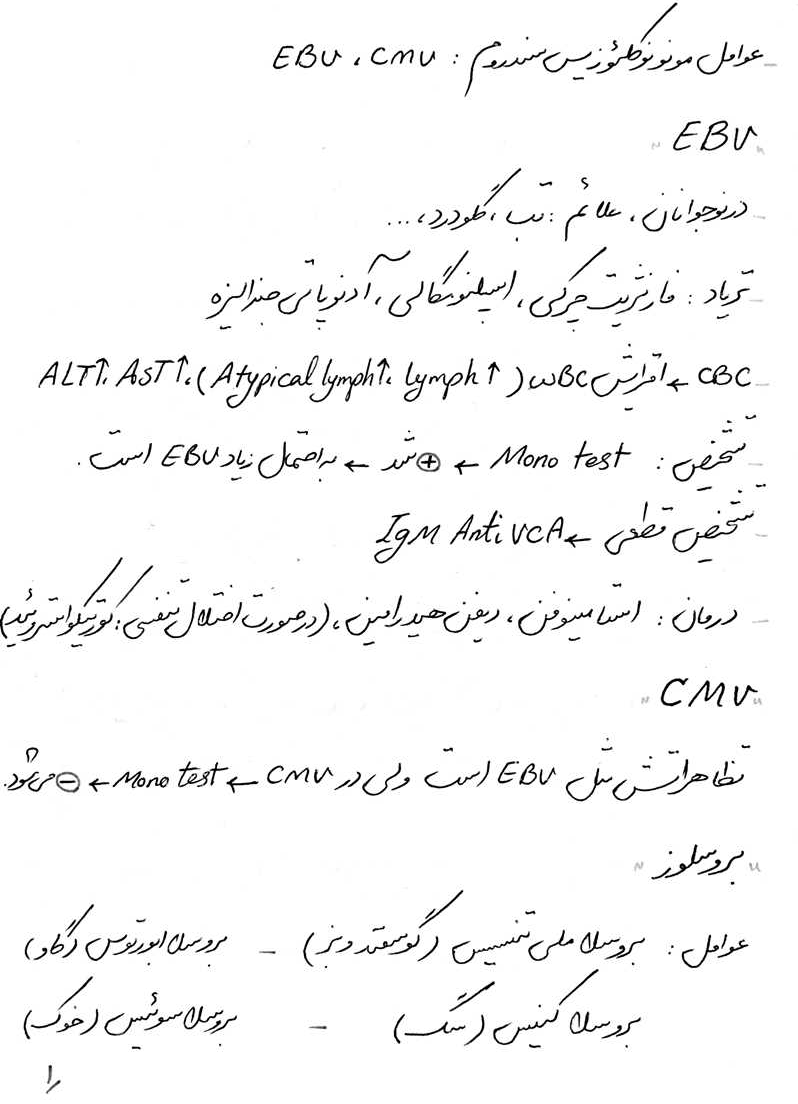 - عوامل مونونوکلئوزیس سندروم : EBV ، CMV
" EBV "
- در نوجوانان ، علائم : تب ، گلودرد ، ...
- تریاد : فارنژیت چرکی ، اسپلنومگالی ، آدنوپاتی
- CBC ← افزایش WBC ( Lymph ↑ ، Atypical lymph ↑ ) ، AST ↑ ، ALT ↑
- تشخیص : Mono test ← ⊕ شد ← به احتمال زیاد EBV است .
- تشخیص قطعی ← IgM Anti VCA
- درمان : استامینوفن ، دیفن هیدرامین ، (در صورت اختلال تنفسی : کورتیکواستروئید)
" CMV "
تظاهراتش مثل EBV است ولی در CMV ← Mono test ← ⊖ می‌شود.
" بروسلوز "
عوامل : بروسلا ملی تنسیس (گوسفند و بز) - بروسلا ابورتوس (گاو)
بروسلا کنیس (سگ) - بروسلا سوئیس (خوک)
۱